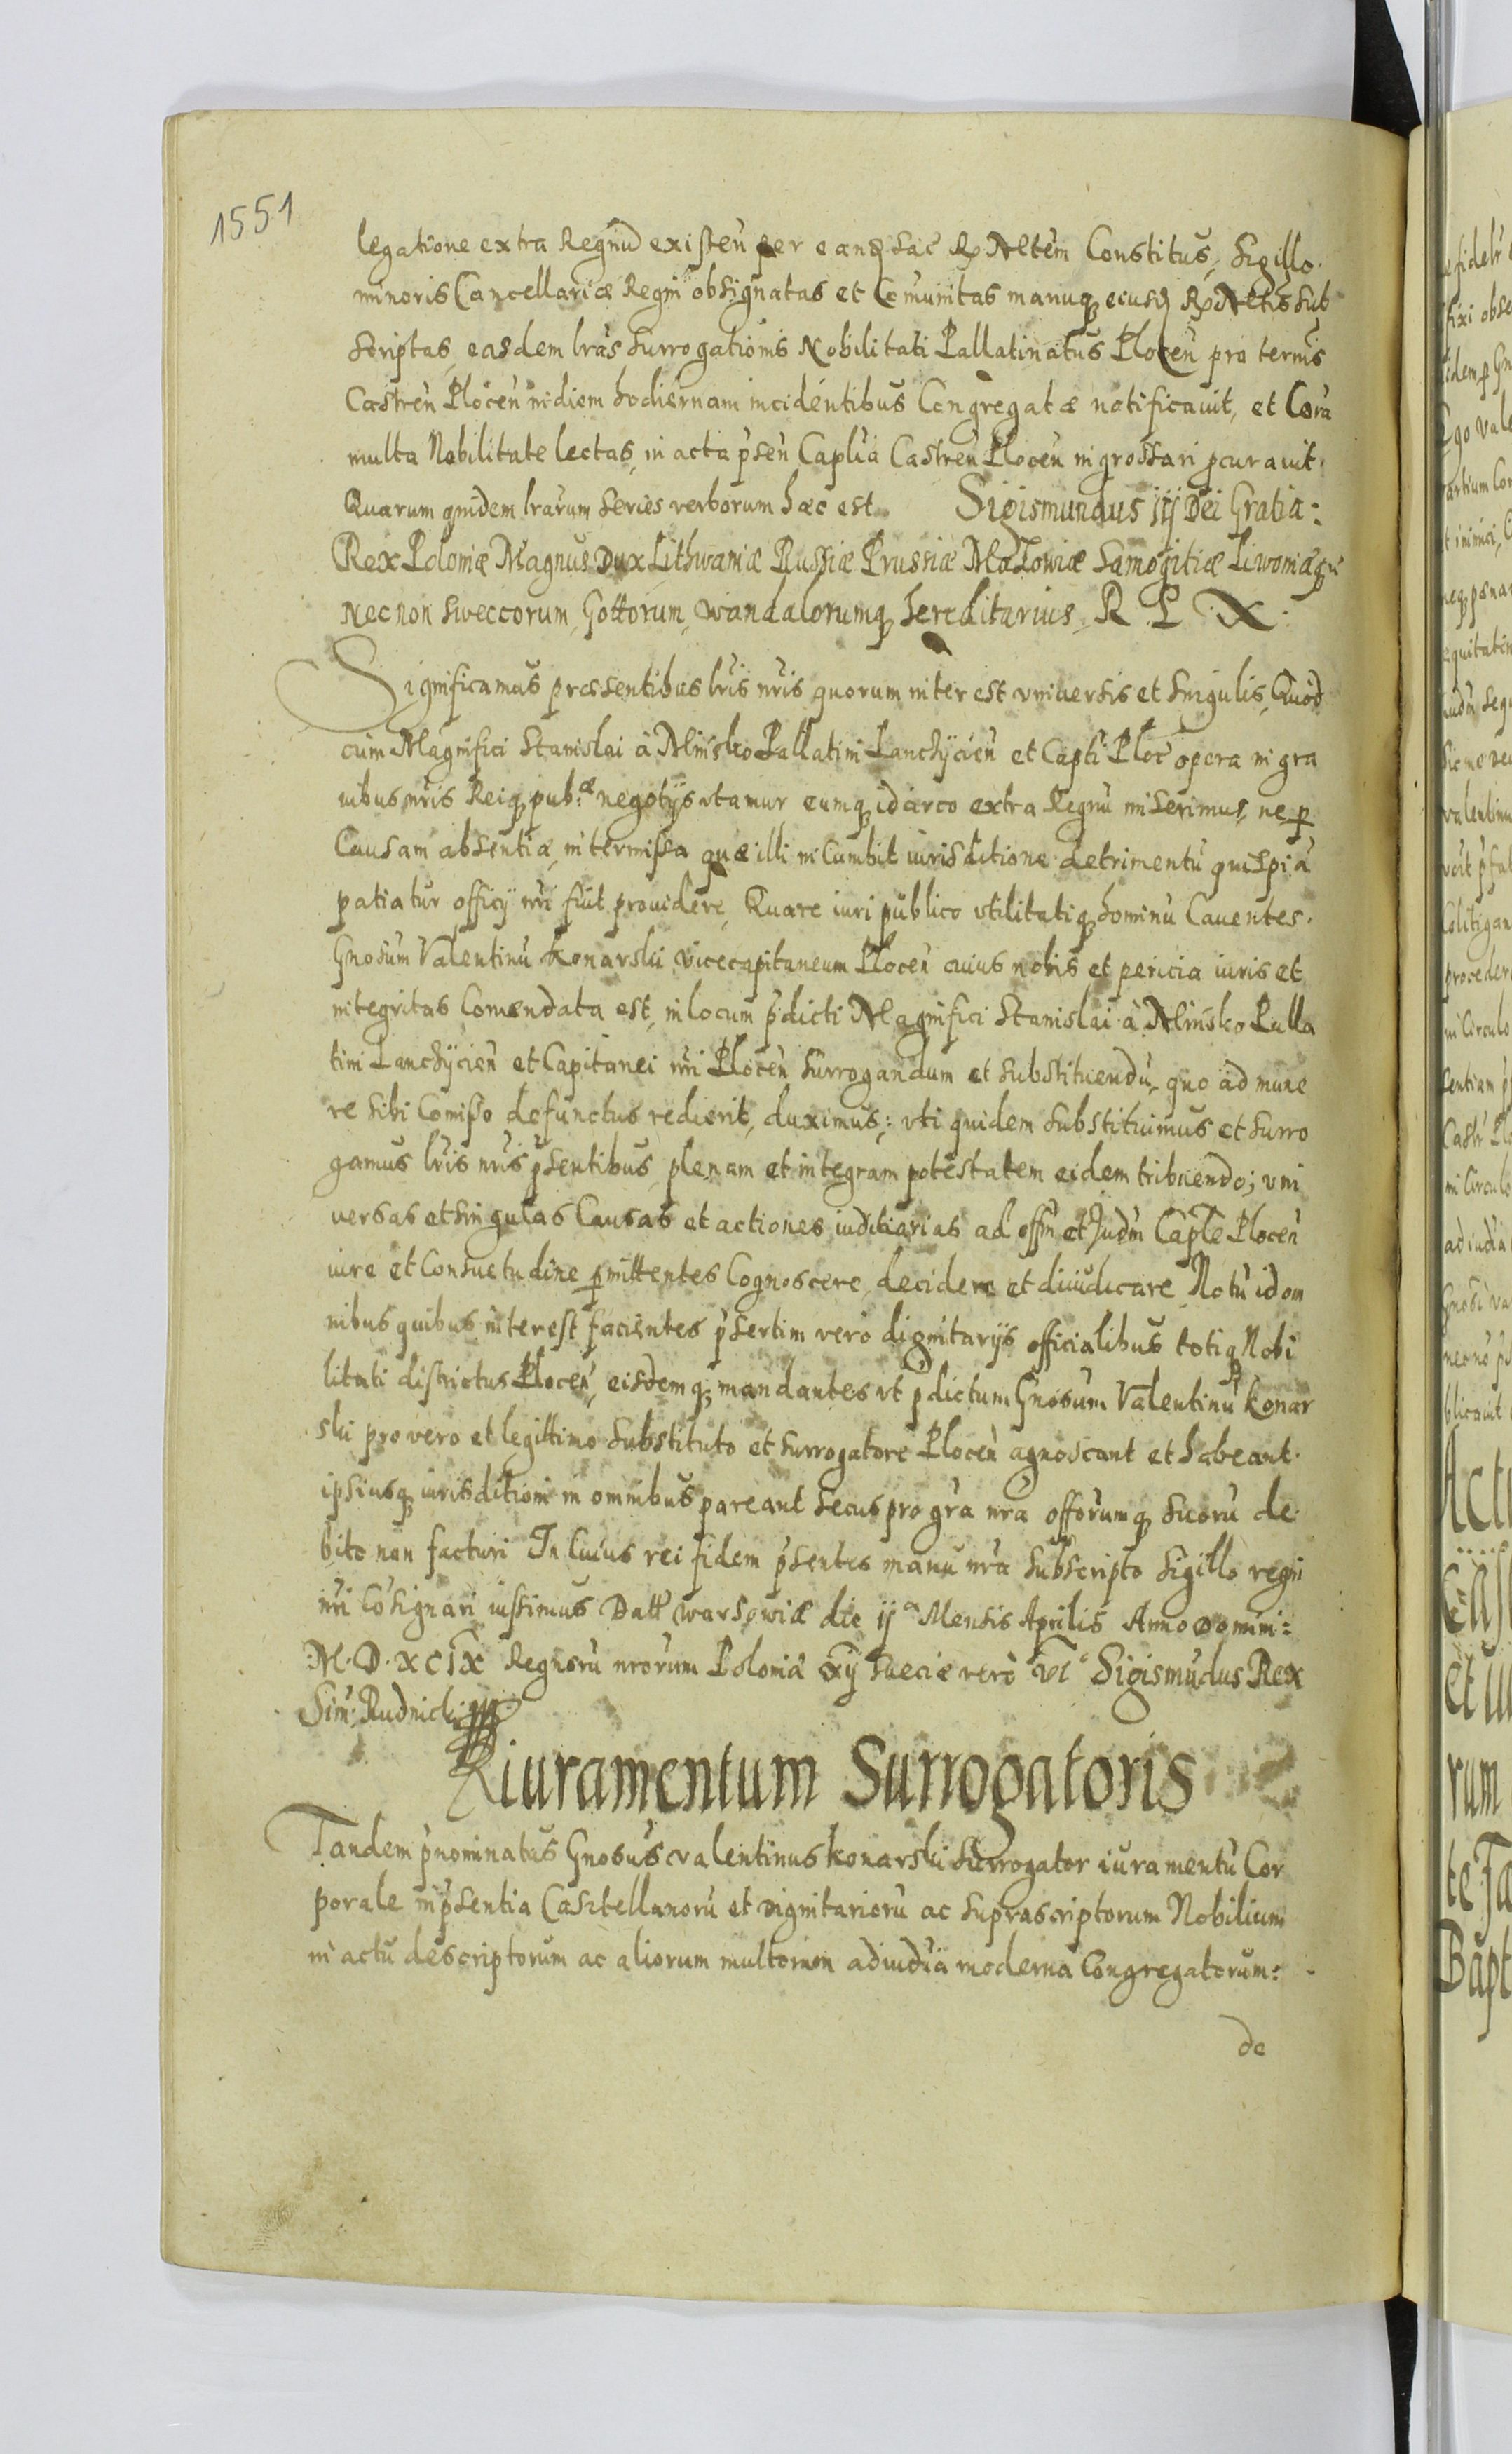 1551
legatione extra Regnũ existeñ per eand Sac R Mtem Constitus, Sigillo
minoris Cancellariæ Regni obsignatas et Comunitas manuq eiusd R Mtis sub
scriptas, easdem lras surrogationis Nobilitati Pallatinatus Ploceñ pro ternis
Castreñ Ploceñ in diem hodiernam incidentibus Congregatæ notificauit, et Corã
multa Nobilitate lectas, in acta pseñ Caplia Castreñ Ploceñ ingrossari pcurauit.
Quarum quidem lrarum series verborum hæc est. Sigismundus iij Dei Gratia:
Rex Poloniæ Magnus Dux Lithwaniæ Russiæ Prussiæ Mazowiæ Samogitiæ Liwoniæq
Necnon Sweccorum, Gottorum, wandalorumq hereditarius, R E X
Significamus præsentibus lris nris quorum interest vniuersis et singulis, Quod
cum Magnifici Stanislai à Minsko Pallatini Lanchycieñ et Capti Ploc opera in gra
uibus nris Reiq pub:æ negotijs vtamur eumq idcirco extra Regnũ miserimus, ne p
Causam absentiæ, intermissa quæ illi incumbit iurisditione detrimentũ quispiã
patiatur officij nri fuit prouidere, Quare iuri publico vtilitatiq hominũ Cauentes.
Gnosum Valentinũ Konarski vicecapitaneum Ploceñ cuius nobis et pericia iuris et
integritas Comendata est, in locum pdicti Magnifici Stanislai à Minsko Palla
tini Lanchycieñ et Capitanei nri Ploceñ surrogandum et substituendũ, quo ad mune
re sibi Comisso defunctus redierit, duximus; vti quidem substituimus et surro
gamus lris nris psentibus, plenam et integram potestatem eidem tribuendo; vni
uersas et singulas Causas et actiones iuditiarias ad offm et Judm Caple Ploceñ
iure et Consuetudine pmittentes Cognoscere, decidere et diiudicare, Notũ id om
nibus quibus interest facientes psertim vero dignitarijs officialibus totiq Nobi
litati districtus Ploceñ, eisdemq mandantes vt pdictum Gnosum Valentinũ Konar
ski pro vero et legittimo substituto et surrogatore Ploceñ agnoscant et habeant.
ipsiusq iurisditioni in omnibus pareant secus pro gra nra offorumq suorũ de
bito non facturi In Cuius rei fidem psentes manu nra subscripto sigillo regni
nri Cosignari iussimus Datt warsowiæ die ij a Mensis Aprilis Anno Domini:
M. D. XCIX Regnorũ nrorum Poloniæ xij Sueciæ vero vi o Sigismũdus Rex
Sim: Rudnicki
Riuramentum Surrogatoris
Tandem pnominatus Gnosus Valentinus Konarski surrogator iuramentũ Cor
porale in psentia Castellanorũ et dignitariorũ ac suprascriptorum Nobilium
in actu descriptorum ac aliorum multorum ad iudia moderna Congregatorum:
de